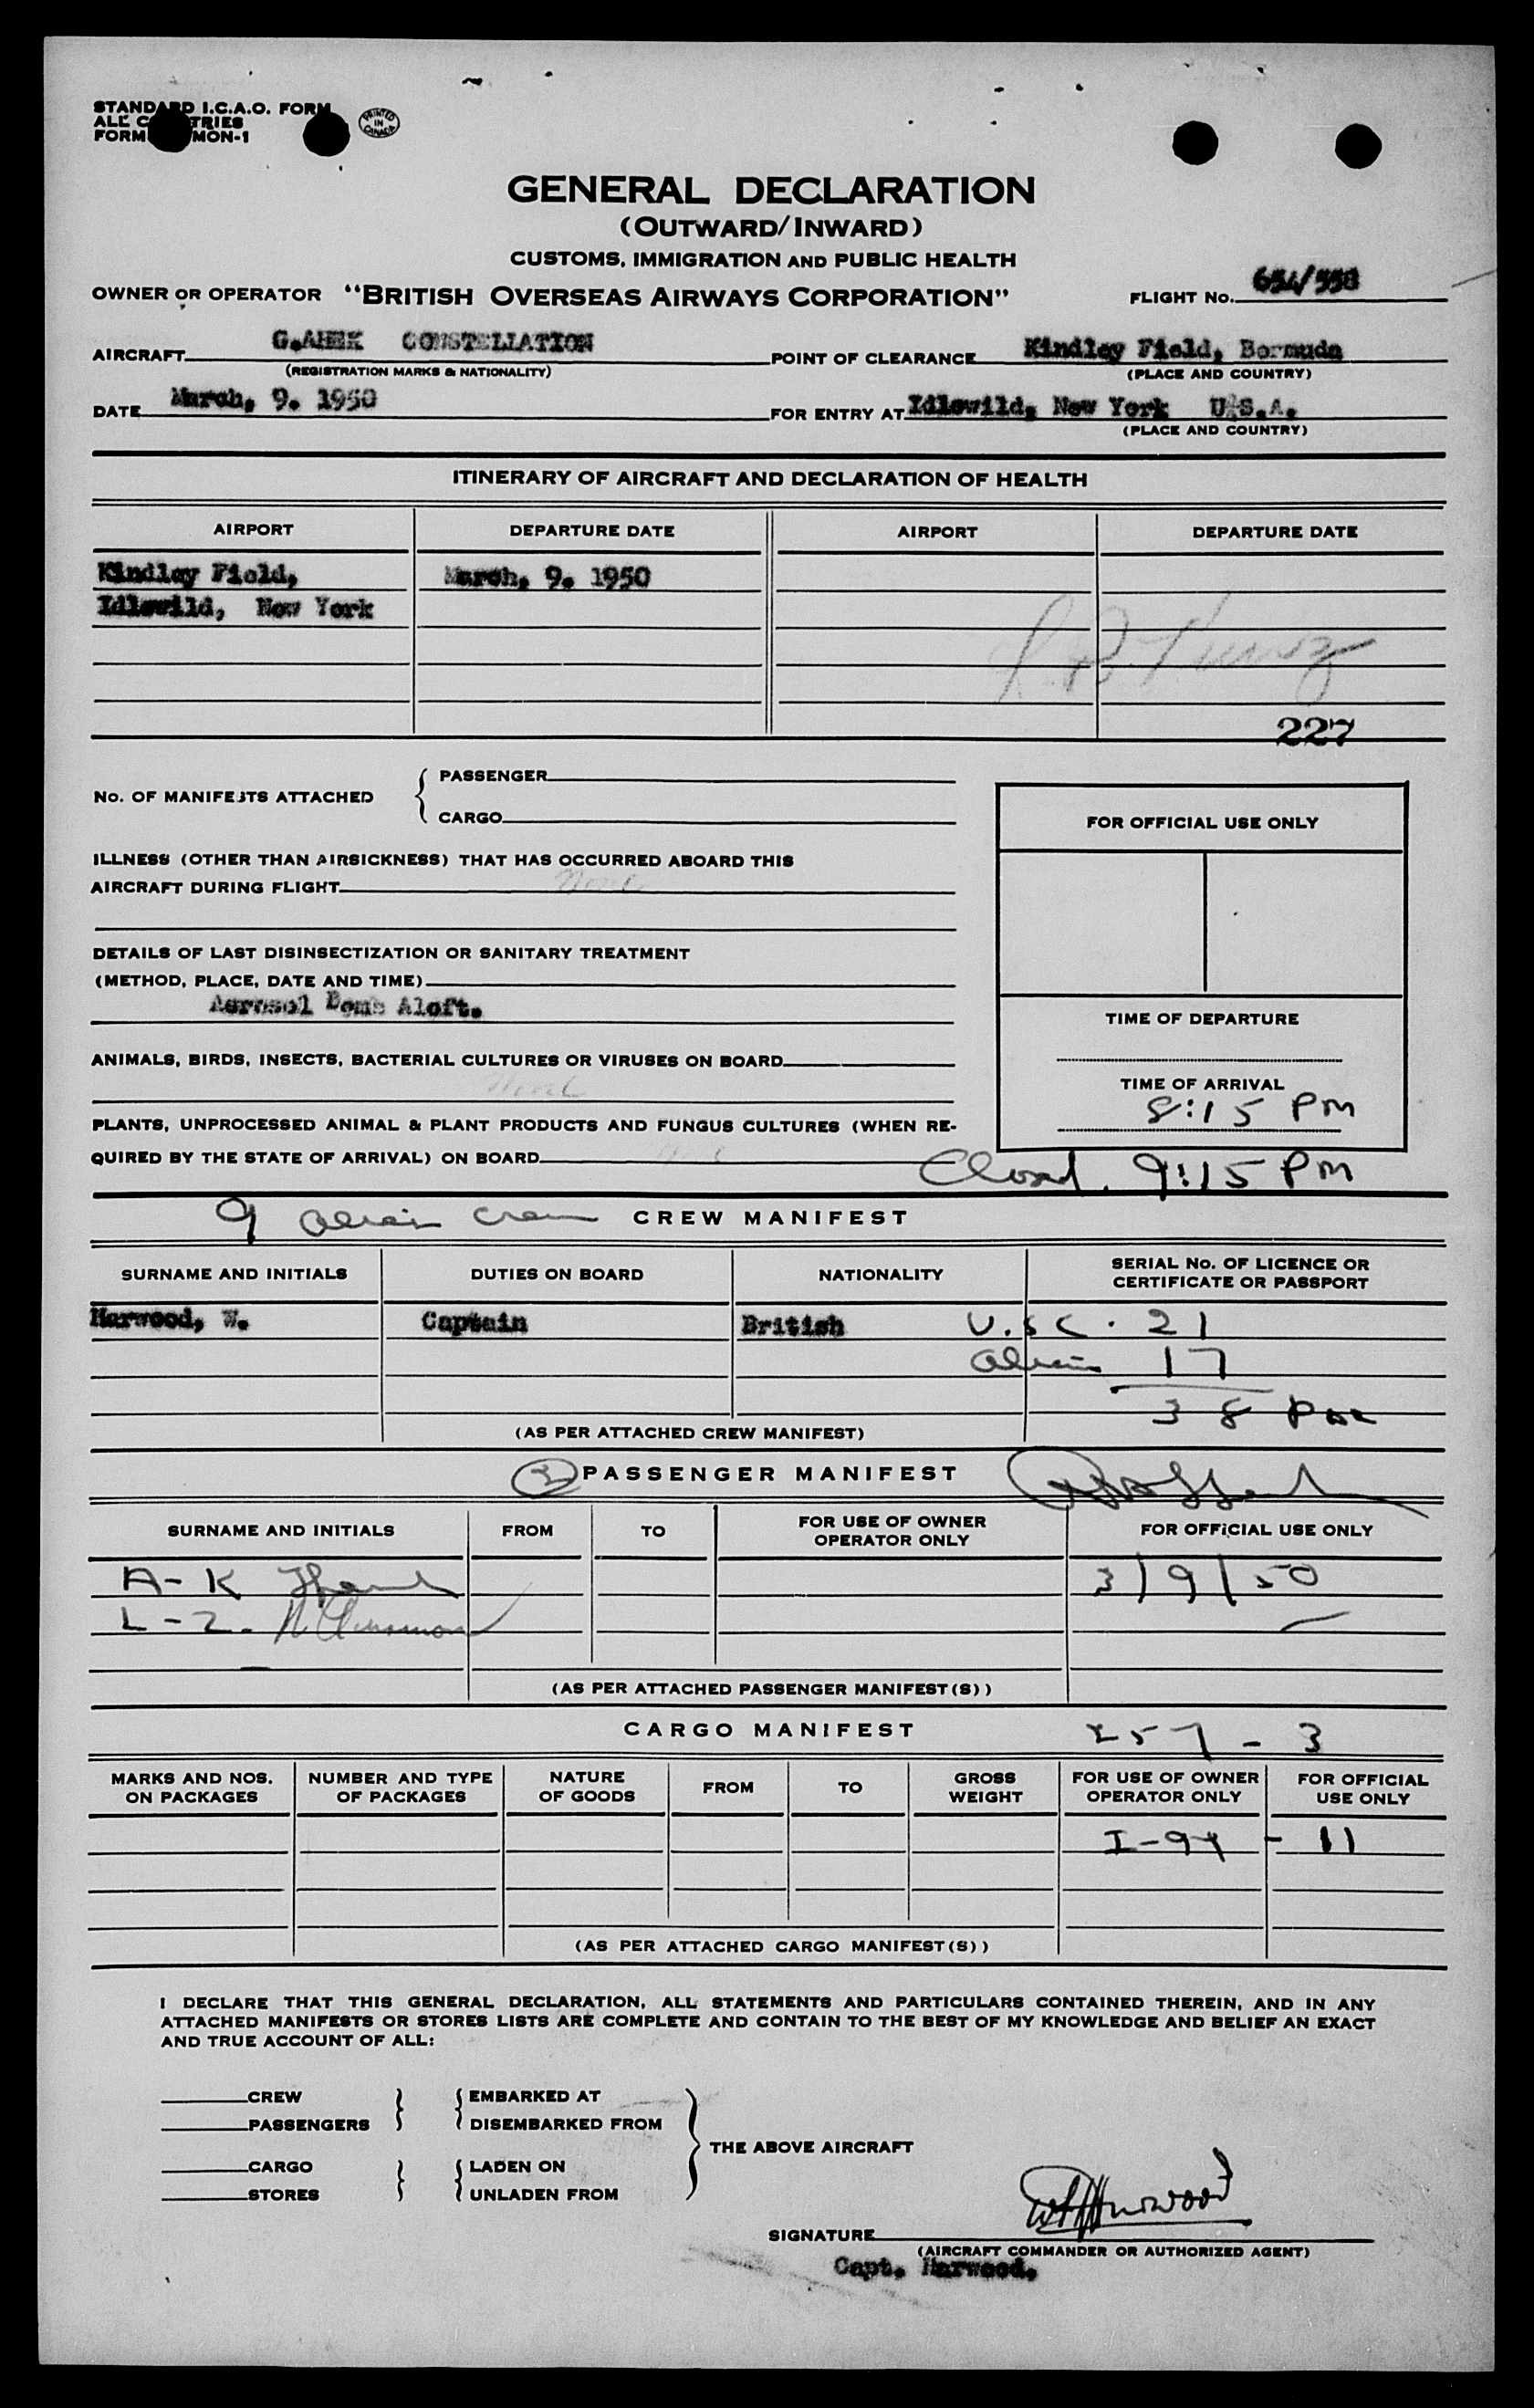 STANDARD I.C.A.O. FORM
ALL COUNTRIES
FORM MON-1
PRINTED IN CANADA
GENERAL DECLARATION
(OUTWARD/INWARD)
CUSTOMS, IMMIGRATION AND PUBLIC HEALTH
OWNER OR OPERATOR "BRITISH OVERSEAS AIRWAYS CORPORATION" FLIGHT No.
AIRCRAFT CONSTELLATION POINT OF CLEARANCE Kindley Field, Bermuda
(REGISTRATION MARKS & NATIONALITY) (PLACE AND COUNTRY)
DATE March, 9. 1950 FOR ENTRY AT Idlewild, New York U.S.A.
(PLACE AND COUNTRY)
ITINERARY OF AIRCRAFT AND DECLARATION OF HEALTH
AIRPORT DEPARTURE DATE AIRPORT DEPARTURE DATE
Kindley Field, March, 9. 1950
Idlewild, New York
227
No. OF MANIFESTS ATTACHED { PASSENGER
CARGO
FOR OFFICIAL USE ONLY
ILLNESS (OTHER THAN AIRSICKNESS) THAT HAS OCCURRED ABOARD THIS
AIRCRAFT DURING FLIGHT None
DETAILS OF LAST DISINSECTIZATION OR SANITARY TREATMENT
(METHOD, PLACE, DATE AND TIME)
Aerosol Bomb Aloft.
TIME OF DEPARTURE
ANIMALS, BIRDS, INSECTS, BACTERIAL CULTURES OR VIRUSES ON BOARD
None
TIME OF ARRIVAL
8:15 PM
PLANTS, UNPROCESSED ANIMAL & PLANT PRODUCTS AND FUNGUS CULTURES (WHEN RE-
QUIRED BY THE STATE OF ARRIVAL) ON BOARD
Closed. 9:15 PM
9 Alien Crew CREW MANIFEST
SURNAME AND INITIALS DUTIES ON BOARD NATIONALITY SERIAL No. OF LICENCE OR
CERTIFICATE OR PASSPORT
Harwood, W. Captain British U.S.C. 21
Alien 17
38 Pax
(AS PER ATTACHED CREW MANIFEST)
PASSENGER MANIFEST
SURNAME AND INITIALS FROM TO FOR USE OF OWNER
OPERATOR ONLY FOR OFFICIAL USE ONLY
A-K 3/9/50
L-Z.
(AS PER ATTACHED PASSENGER MANIFEST(S))
CARGO MANIFEST 257 - 3
MARKS AND NOS.
ON PACKAGES NUMBER AND TYPE
OF PACKAGES NATURE
OF GOODS FROM TO GROSS
WEIGHT FOR USE OF OWNER
OPERATOR ONLY FOR OFFICIAL
USE ONLY
I-94 - 11
(AS PER ATTACHED CARGO MANIFEST(S))
I DECLARE THAT THIS GENERAL DECLARATION, ALL STATEMENTS AND PARTICULARS CONTAINED THEREIN, AND IN ANY
ATTACHED MANIFESTS OR STORES LISTS ARE COMPLETE AND CONTAIN TO THE BEST OF MY KNOWLEDGE AND BELIEF AN EXACT
AND TRUE ACCOUNT OF ALL:
CREW EMBARKED AT
PASSENGERS DISEMBARKED FROM
THE ABOVE AIRCRAFT
CARGO LADEN ON
STORES UNLADEN FROM
SIGNATURE Harwood
(AIRCRAFT COMMANDER OR AUTHORIZED AGENT)
Capt. Harwood.